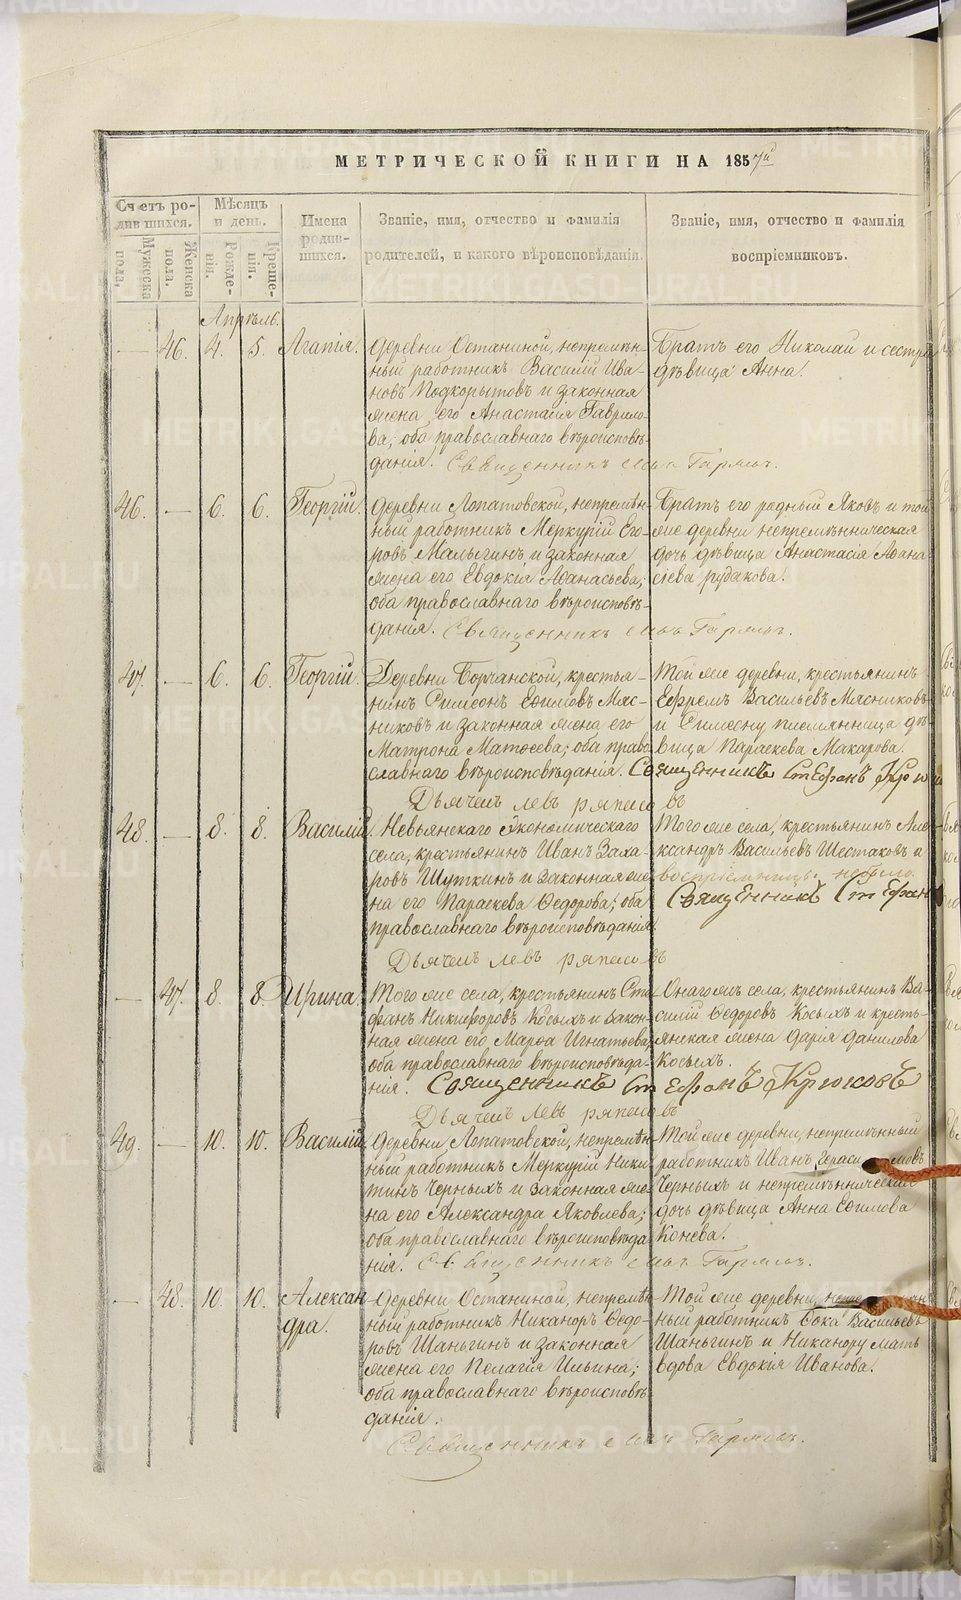 МЕТРИЧЕСКОЙ КНИГИ НА 1857й
Счетъ ро-
дившихся.
Мѣсяцъ
и день.
Имена
родив-
шихся.
Званіе, имя, отчество и фамилія
родителей, и какого вѣроисповѣданія.
Званіе, имя, отчество и фамилія
воспріемниковъ.
Мужеска
пола.
Женска
пола.
Рожде-
нія.
Креще-
нія.
Апрѣль.
— 46. 4. 5. Агапія.
деревни Останиной, непремѣн-
ный работникъ Василій Ива-
новъ Подкорытовъ и законная
жена его Анастасія Гаврило-
ва, оба православнаго вѣроисповѣ-
данія. Священникъ
Братъ его Николай и сестра
дѣвица Анна.
46. — 6. 6. Георгій.
деревни Лопатовской, непремѣн-
ный работникъ Меркурій Его-
ровъ Малыгинъ и законная
жена его Евдокія Аѳанасьева;
оба православнаго вѣроисповѣ-
данія. Священникъ
Братъ его родный Яковъ и той
же деревни непремѣнническая
дочь дѣвица Анастасія Аѳана-
сіева Рудакова.
47. — 6. 6. Георгій.
Деревни Борчанской, крестья-
нинъ Симеонъ Ефимовъ Мяс-
никовъ и законная жена его
Матрона Матѳеева; оба право-
славнаго вѣроисповѣданія. Священникъ Стефанъ Крюковъ
Дьячекъ Левъ Ряпасовъ
Той же деревни, крестьянинъ
Ефремъ Васильевъ Мясниковъ
и Симеону племянница дѣ-
вица Параскева Макарова.
48. — 8. 8. Василій.
Невьянскаго Экономическаго
села, крестьянинъ Иванъ Заха-
ровъ Шуткинъ и законная же-
на его Параскева Ѳедорова; оба
православнаго вѣроисповѣданія.
Дьячекъ Левъ Ряпасовъ
Того же села, крестьянинъ Але-
ксандръ Васильевъ Шестаковъ а
воспріемницы не было.
Священникъ Стефанъ
— 47. 8. 8. Ирина.
Того же села, крестьянинъ Сте-
фанъ Никифоровъ Косыхъ и закон-
ная жена его Марѳа Игнатьева;
оба православнаго вѣроисповѣда-
нія. Священникъ Стефанъ Крюковъ
Дьячекъ Левъ Ряпасовъ
Онаго жъ села, крестьянинъ Ва-
силій Ѳедоровъ Косыхъ и кресть-
янская жена Дарія Данилова
Косыхъ.
49. — 10. 10. Василій.
деревни Лопатовской, непремѣн-
ный работникъ Меркурій Ники-
тинъ Черныхъ и законная же-
на его Александра Яковлева;
оба православнаго вѣроисповѣда-
нія. Священникъ
Той же деревни, непремѣнный
работникъ Иванъ Герасимовъ
Черныхъ и непремѣнническая
дочь дѣвица Анна Ефимова
Конева.
— 48. 10. 10. Алексан-
дра.
деревни Останиной, непремѣн-
ный работникъ Никаноръ Ѳедо-
ровъ Шаньгинъ и законная
жена его Пелагія Ильина;
оба православнаго вѣроисповѣ-
данія.
Священникъ
Той же деревни, непремѣн-
ный работникъ Ѳока Васильевъ
Шаньгинъ и Никанору мать
вдова Евдокія Иванова.
METRIKI.GASO-URAL.RU